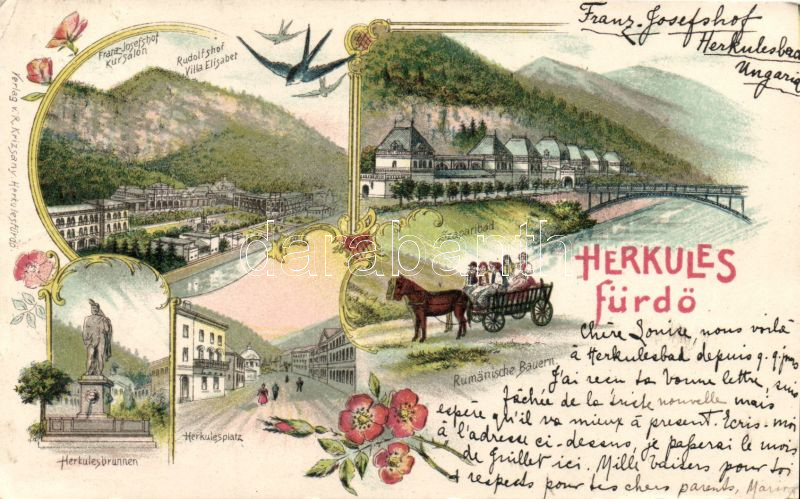 Franz-Josefshof
Herkulesbad
Ungarie
Franz Josefshof
Kursalon
Rudolfshof
Villa Elisabet
Verlag v. R. Krizsány, Herkulesfürdő.
Szaparibad
HERKULES
fürdő
darabanth
Rumänische Bauern
Herkulesbrunnen
Herkulesplatz
Chère Louise, nous voilà
à Herkulesbad depuis q.q. jours
J'ai reçu ta bonne lettre, suis
fâchée de la triste nouvelle mais
espère qu'il va mieux à présent. Ecris-moi
à l'adresse ci-dessus, je passerai le mois
de Juillet ici. Mille baisers pour toi
& respects pour tes chers parents,